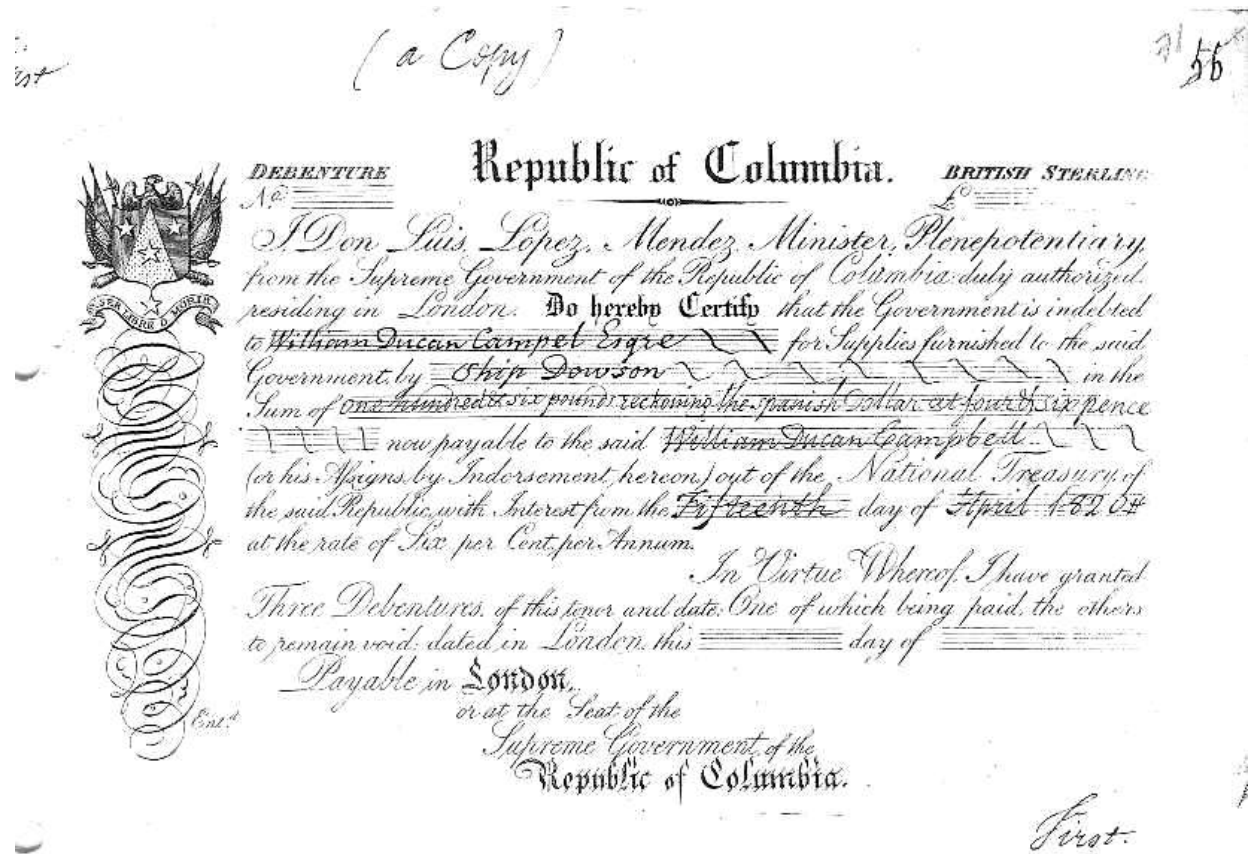 (a Copy)
56
DEBENTURE
Republic of Columbia.
BRITISH STERLING
No.
£
I Don Luis Lopez, Mendez Minister, Plenepotentiary,
from the Supreme Government of the Republic of Columbia: duly authorized
residing in London. Do hereby Certify that the Government is indebted
to William Ducan Campel Esqre for Supplies furnished to the said
Government, by Ship Dowson in the
Sum of one hundred & six pounds reckoning the spanish Dollar at four & six pence
now payable to the said William Ducan Campbell
(or his Assigns, by Indorsement, hereon,) out of the National Treasury, of
the said Republic, with Interest from the Fifteenth day of April 1820
at the rate of Six per Cent, per Annum.
In Virtue Whereof, I have granted
Three Debentures, of this tenor and date: One of which being paid, the others
to remain void: dated in London, this day of
Payable in London,
or at the Seat of the
Supreme Government, of the
Republic of Columbia.
SER LIBRE O MORIR
Ent.d
First.